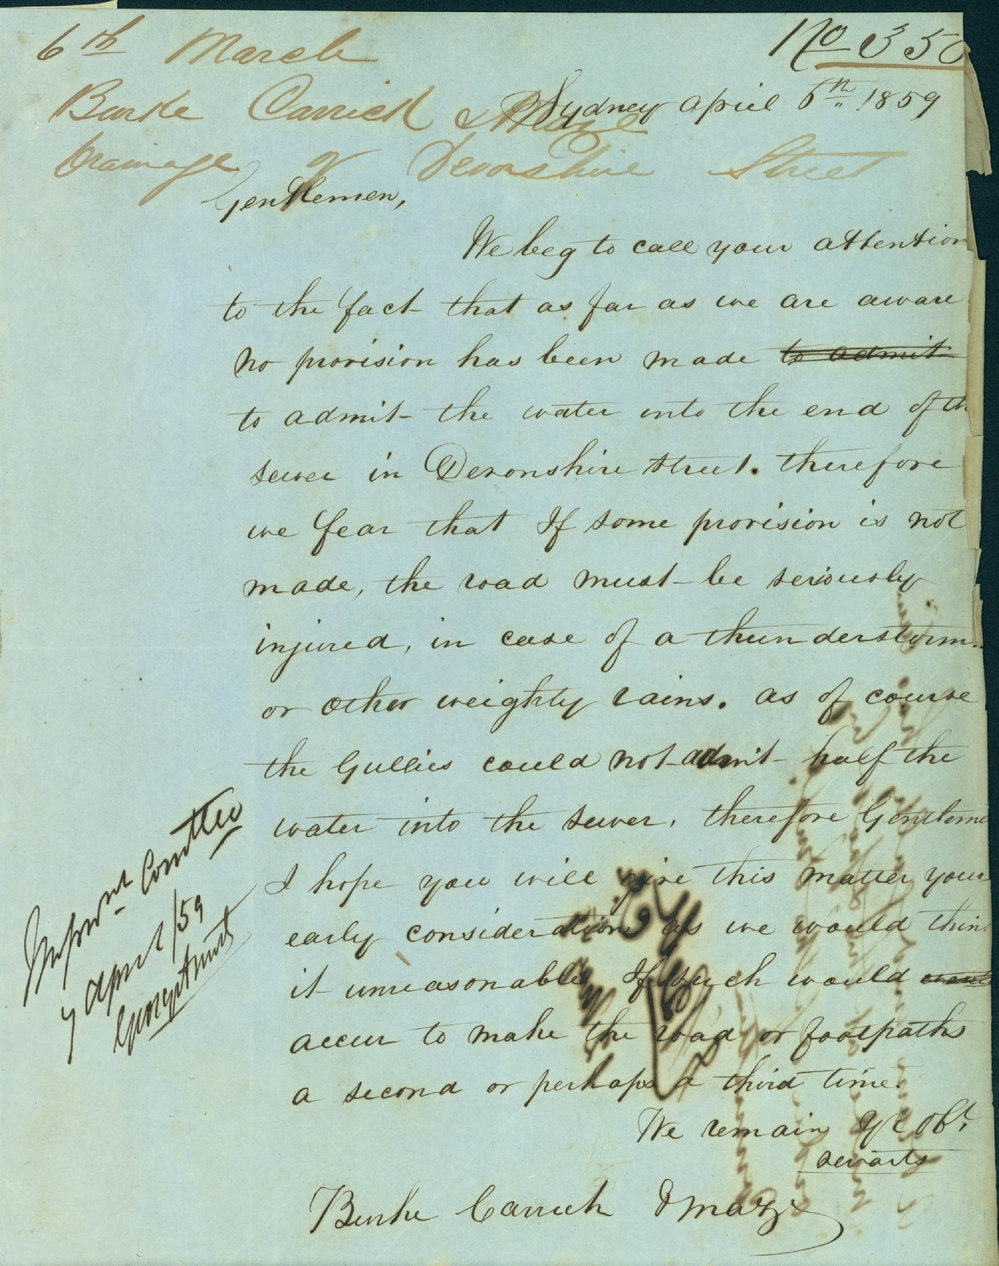 No 350
6th March
Burke Carrick & Maze
Drainage of Devonshire Street
Sydney April 6th 1859
Gentlemen,
We beg to call your attention
to the fact that as far as we are aware
no provision has been made to admit
to admit the water into the end of the
sewer in Devonshire Street. therefore
we fear that If some provision is not
made, the road must be seriously
injured, in case of a thunderstorm
or other weighty rains. as of course
the Gullies could not admit half the
water into the sewer, therefore Gentleme
I hope you will give this matter your
early consideration, as we would thin
it unreasonable If such would
accur to make the road or footpaths
a second or perhaps a third time.
We remain Yr Obt
servants
Burke Carrick & Maze
Improvnt Comttee
7 April /59